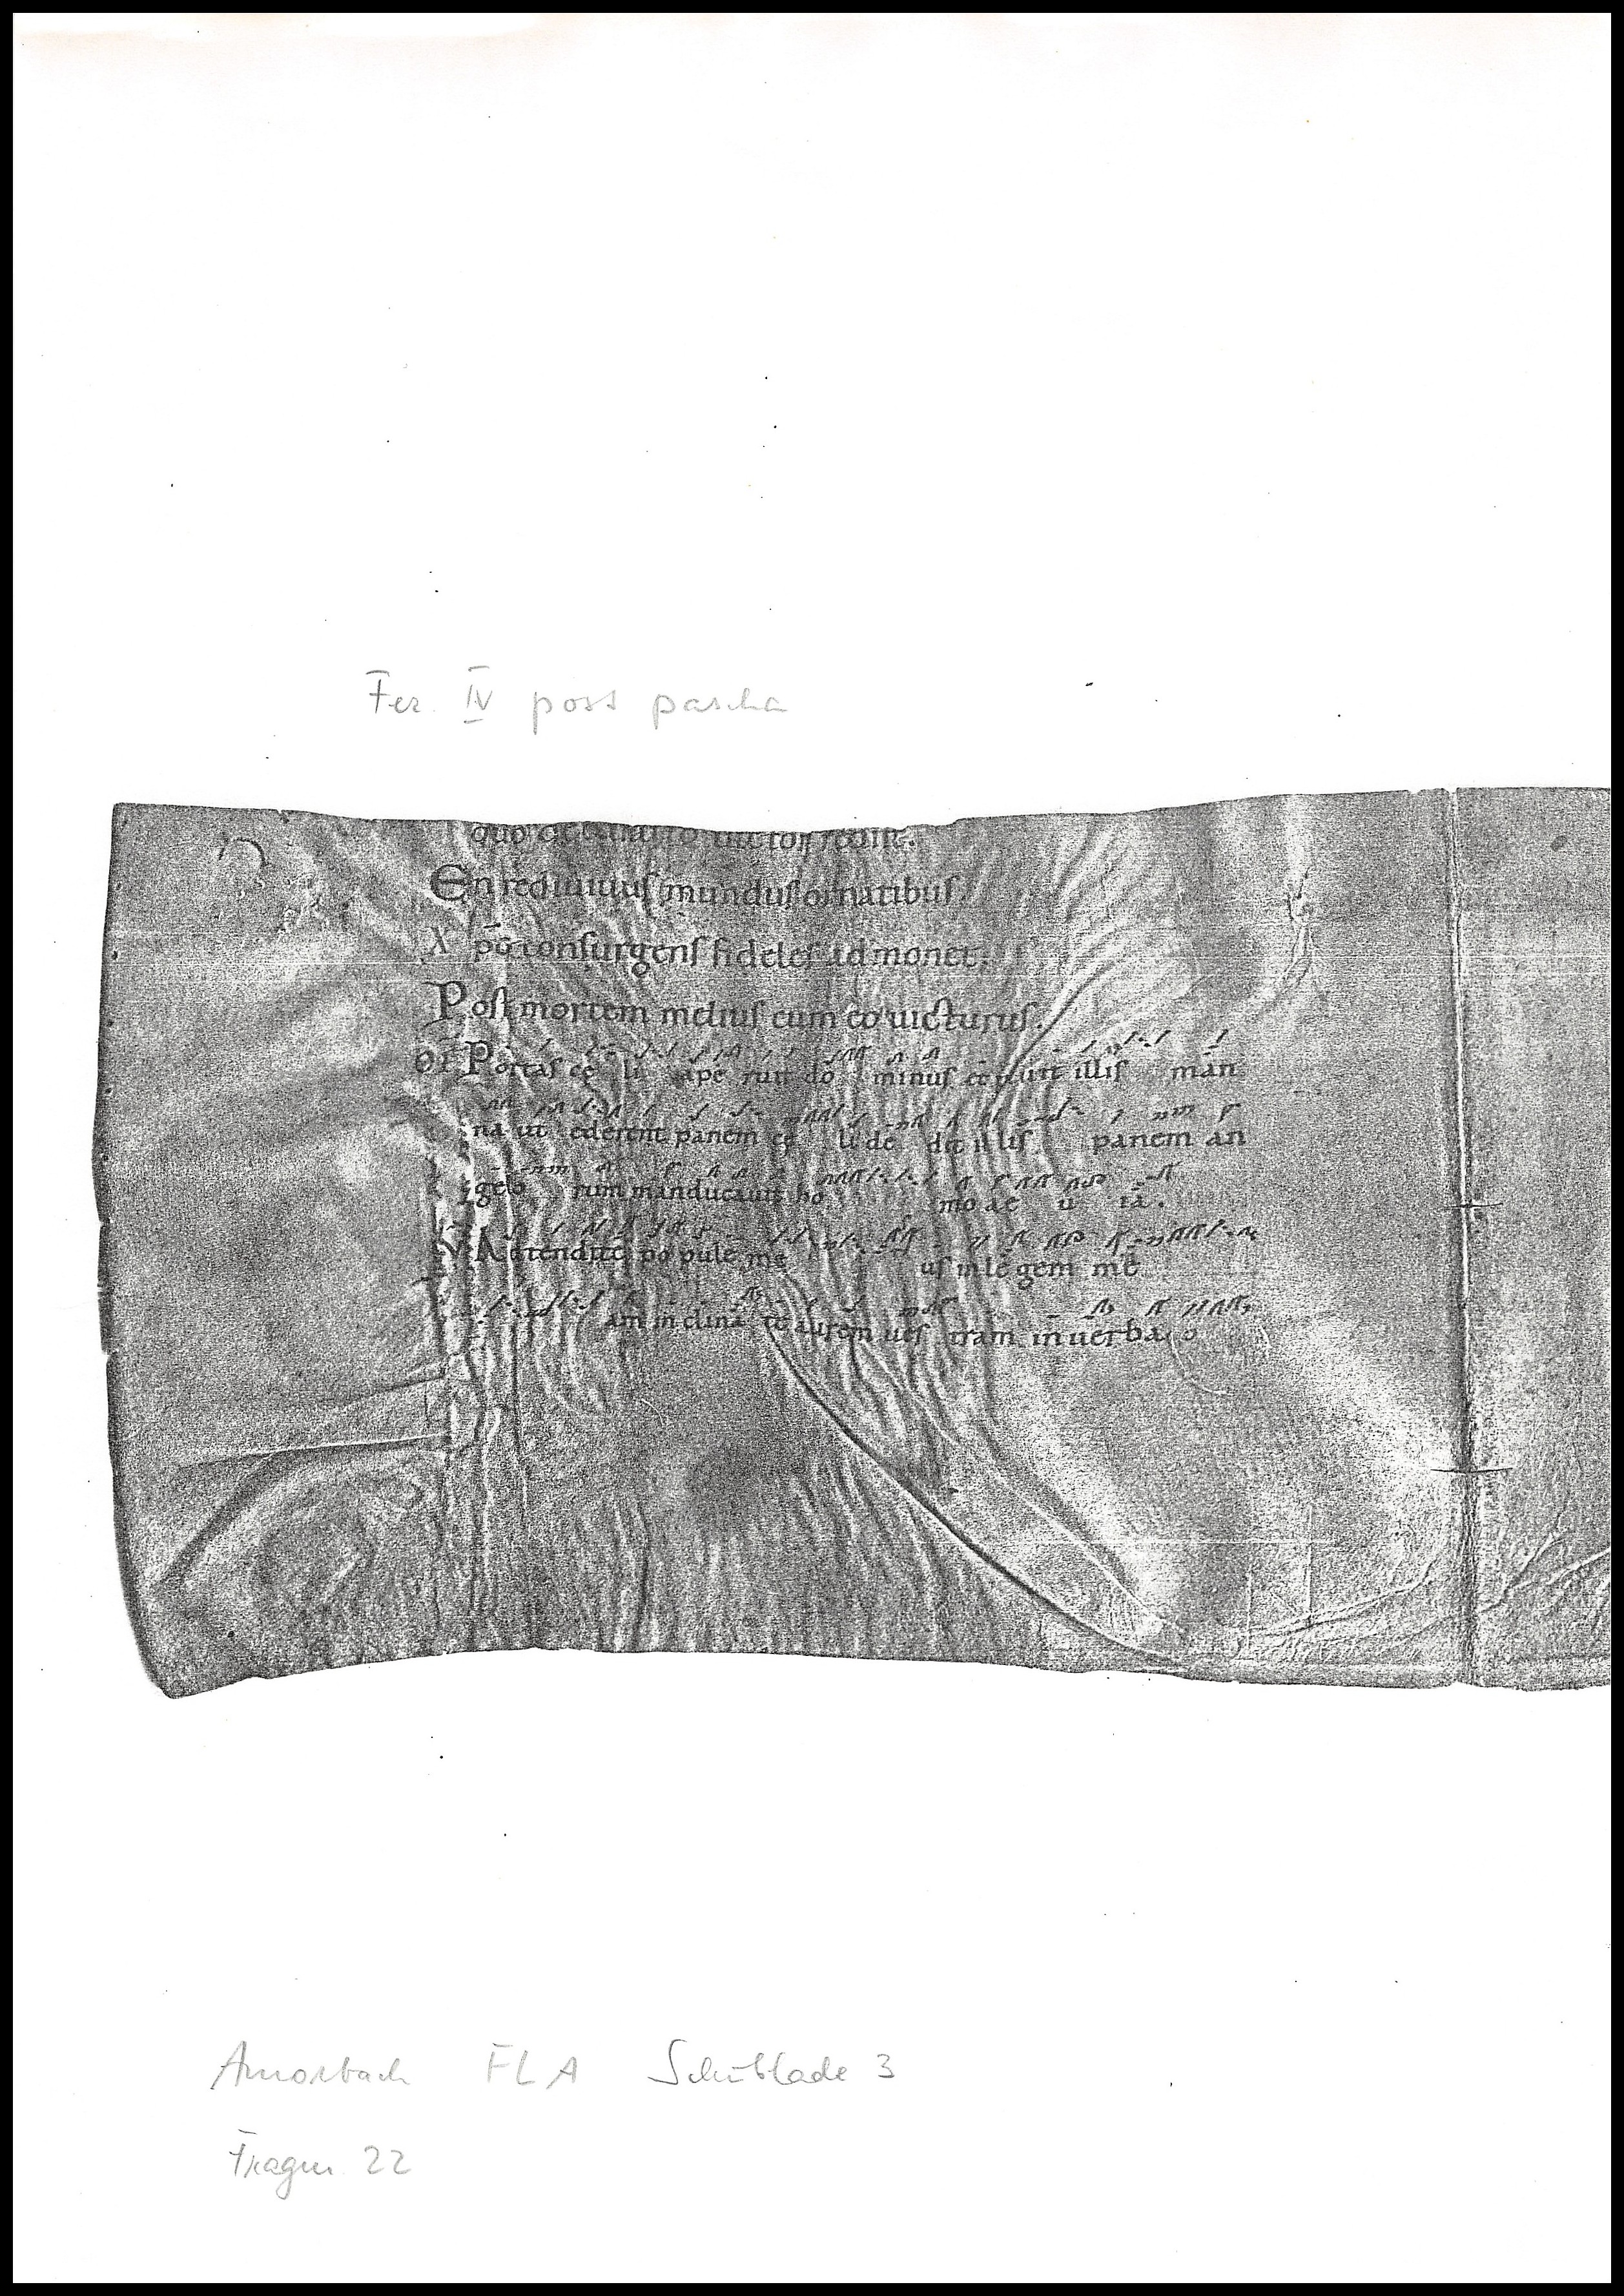 Fer. IV post pascha
En rediuiuus mundus ornatibus.
Xpo consurgens fideles admonet.
Post mortem melius cum eo uicturus.
Of Portas cę li ape ruit do minus et pluit illis man
na ut ederent panem cę li de dit il lis. panem an
gelo rum manducauit ho mo ae u ia.
V Attendite po pule me us in le gem me
am in clina te aurem ues tram in uerba o
Amorbach FLA Schublade 3
Fragm 22